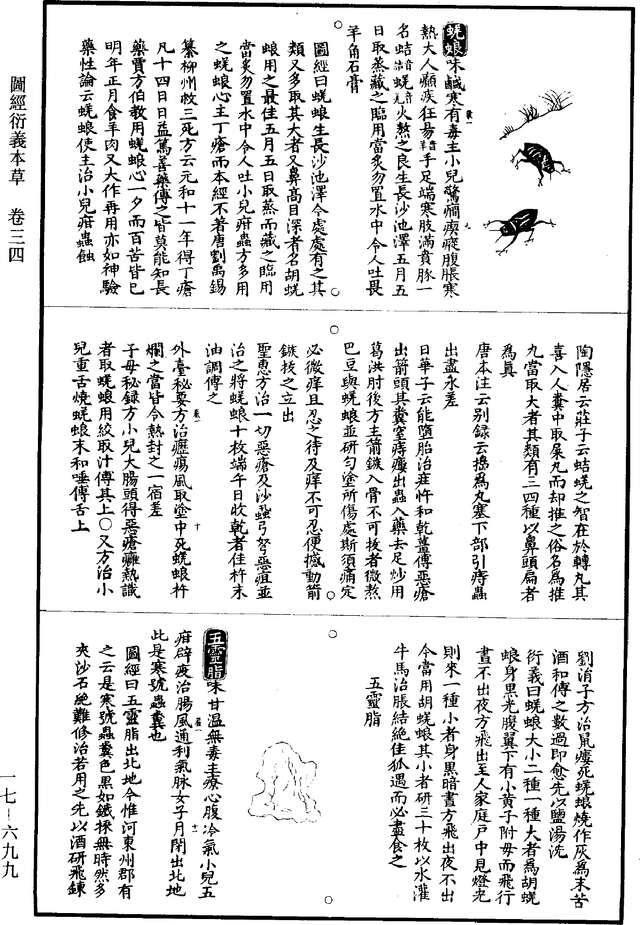 圖經衍義本草　卷三四
一七－六九九
蜣蜋味鹹寒有毒主小兒驚癇瘈瘲腹脹寒
熱大人癲疾狂昜手足端寒肢滿賁豚一
名蛣蜣火熬之良生長沙池澤五月五
日取蒸藏之臨用當炙勿置水中令人吐畏
羊角石膏
圖經曰蜣蜋生長沙池澤今處處有之其
類又多取其大者又鼻高目深者名胡蜣
蜋用之最佳五月五日取蒸而藏之臨用
當炙勿置水中令人吐小兒疳蟲方多用
之蜣蜋心主丁瘡而本經不著唐劉禹錫
纂柳州救三死方云元和十一年得丁瘡
凡十四日日益篤善藥傅之皆莫能知長
藥賈方伯教用蜣蜋心一夕而百苦皆已
明年正月食羊肉又大作再用亦如神驗
藥性論云蜣蜋使主治小兒疳蟲蝕
陶隱居云莊子云蛣蜣之智在於轉丸其
喜入人糞中取屎丸而却推之俗名爲推
丸當取大者其類有三四種以鼻頭扁者
爲真
唐本注云别録云擣爲丸塞下部引痔蟲
出盡永差
日華子云能墮胎治疰忤和乾薑傅惡瘡
出箭頭其糞窒痔瘻出蟲入藥去足炒用
葛洪肘後方主箭鏃入骨不可拔者微熬
巴豆與蜣蜋並研匀塗所傷處斯須痛定
必微痒且忍之待及痒不可忍便撼動箭
鏃拔之立出
聖惠方治一切惡瘡及沙蝨弓弩惡疽並
治之將蜣蜋十枚端午日收乾者佳杵末
油調傅之
外臺秘要方治癧瘍風取塗中死蜣蜋杵
爛之當皆令熱封之一宿差
子母秘録方小兒大腸頭得惡瘡癰熱識
者取蜣蜋用絞取汁傅其上〇又方治小
兒重舌燒蜣蜋末和唾傅舌上
劉涓子方治鼠瘻死蜣蜋燒作灰爲末苦
酒和傅之數過即愈先以鹽湯洗
衍義曰蜣蜋大小二種一種大者爲胡蜣
蜋身黑光腹翼下有小黄子附母而飛行
晝不出夜方飛出至人家庭戸中見燈光
則來一種小者身黑暗晝方飛出夜不出
今當用胡蜣蜋其小者研三十枚以水灌
牛馬治脹結絶佳狐遇而必盡食之
五靈脂
五靈脂味甘温無毒主療心腹冷氣小兒五
疳辟疫治腸風通利氣脉女子月閉出北地
此是寒號蟲糞也
圖經曰五靈脂出北地今惟河東州郡有
之云是寒號蟲糞色黑如鐵採無時然多
夾沙石絶難修治若用之先以酒研飛鍊